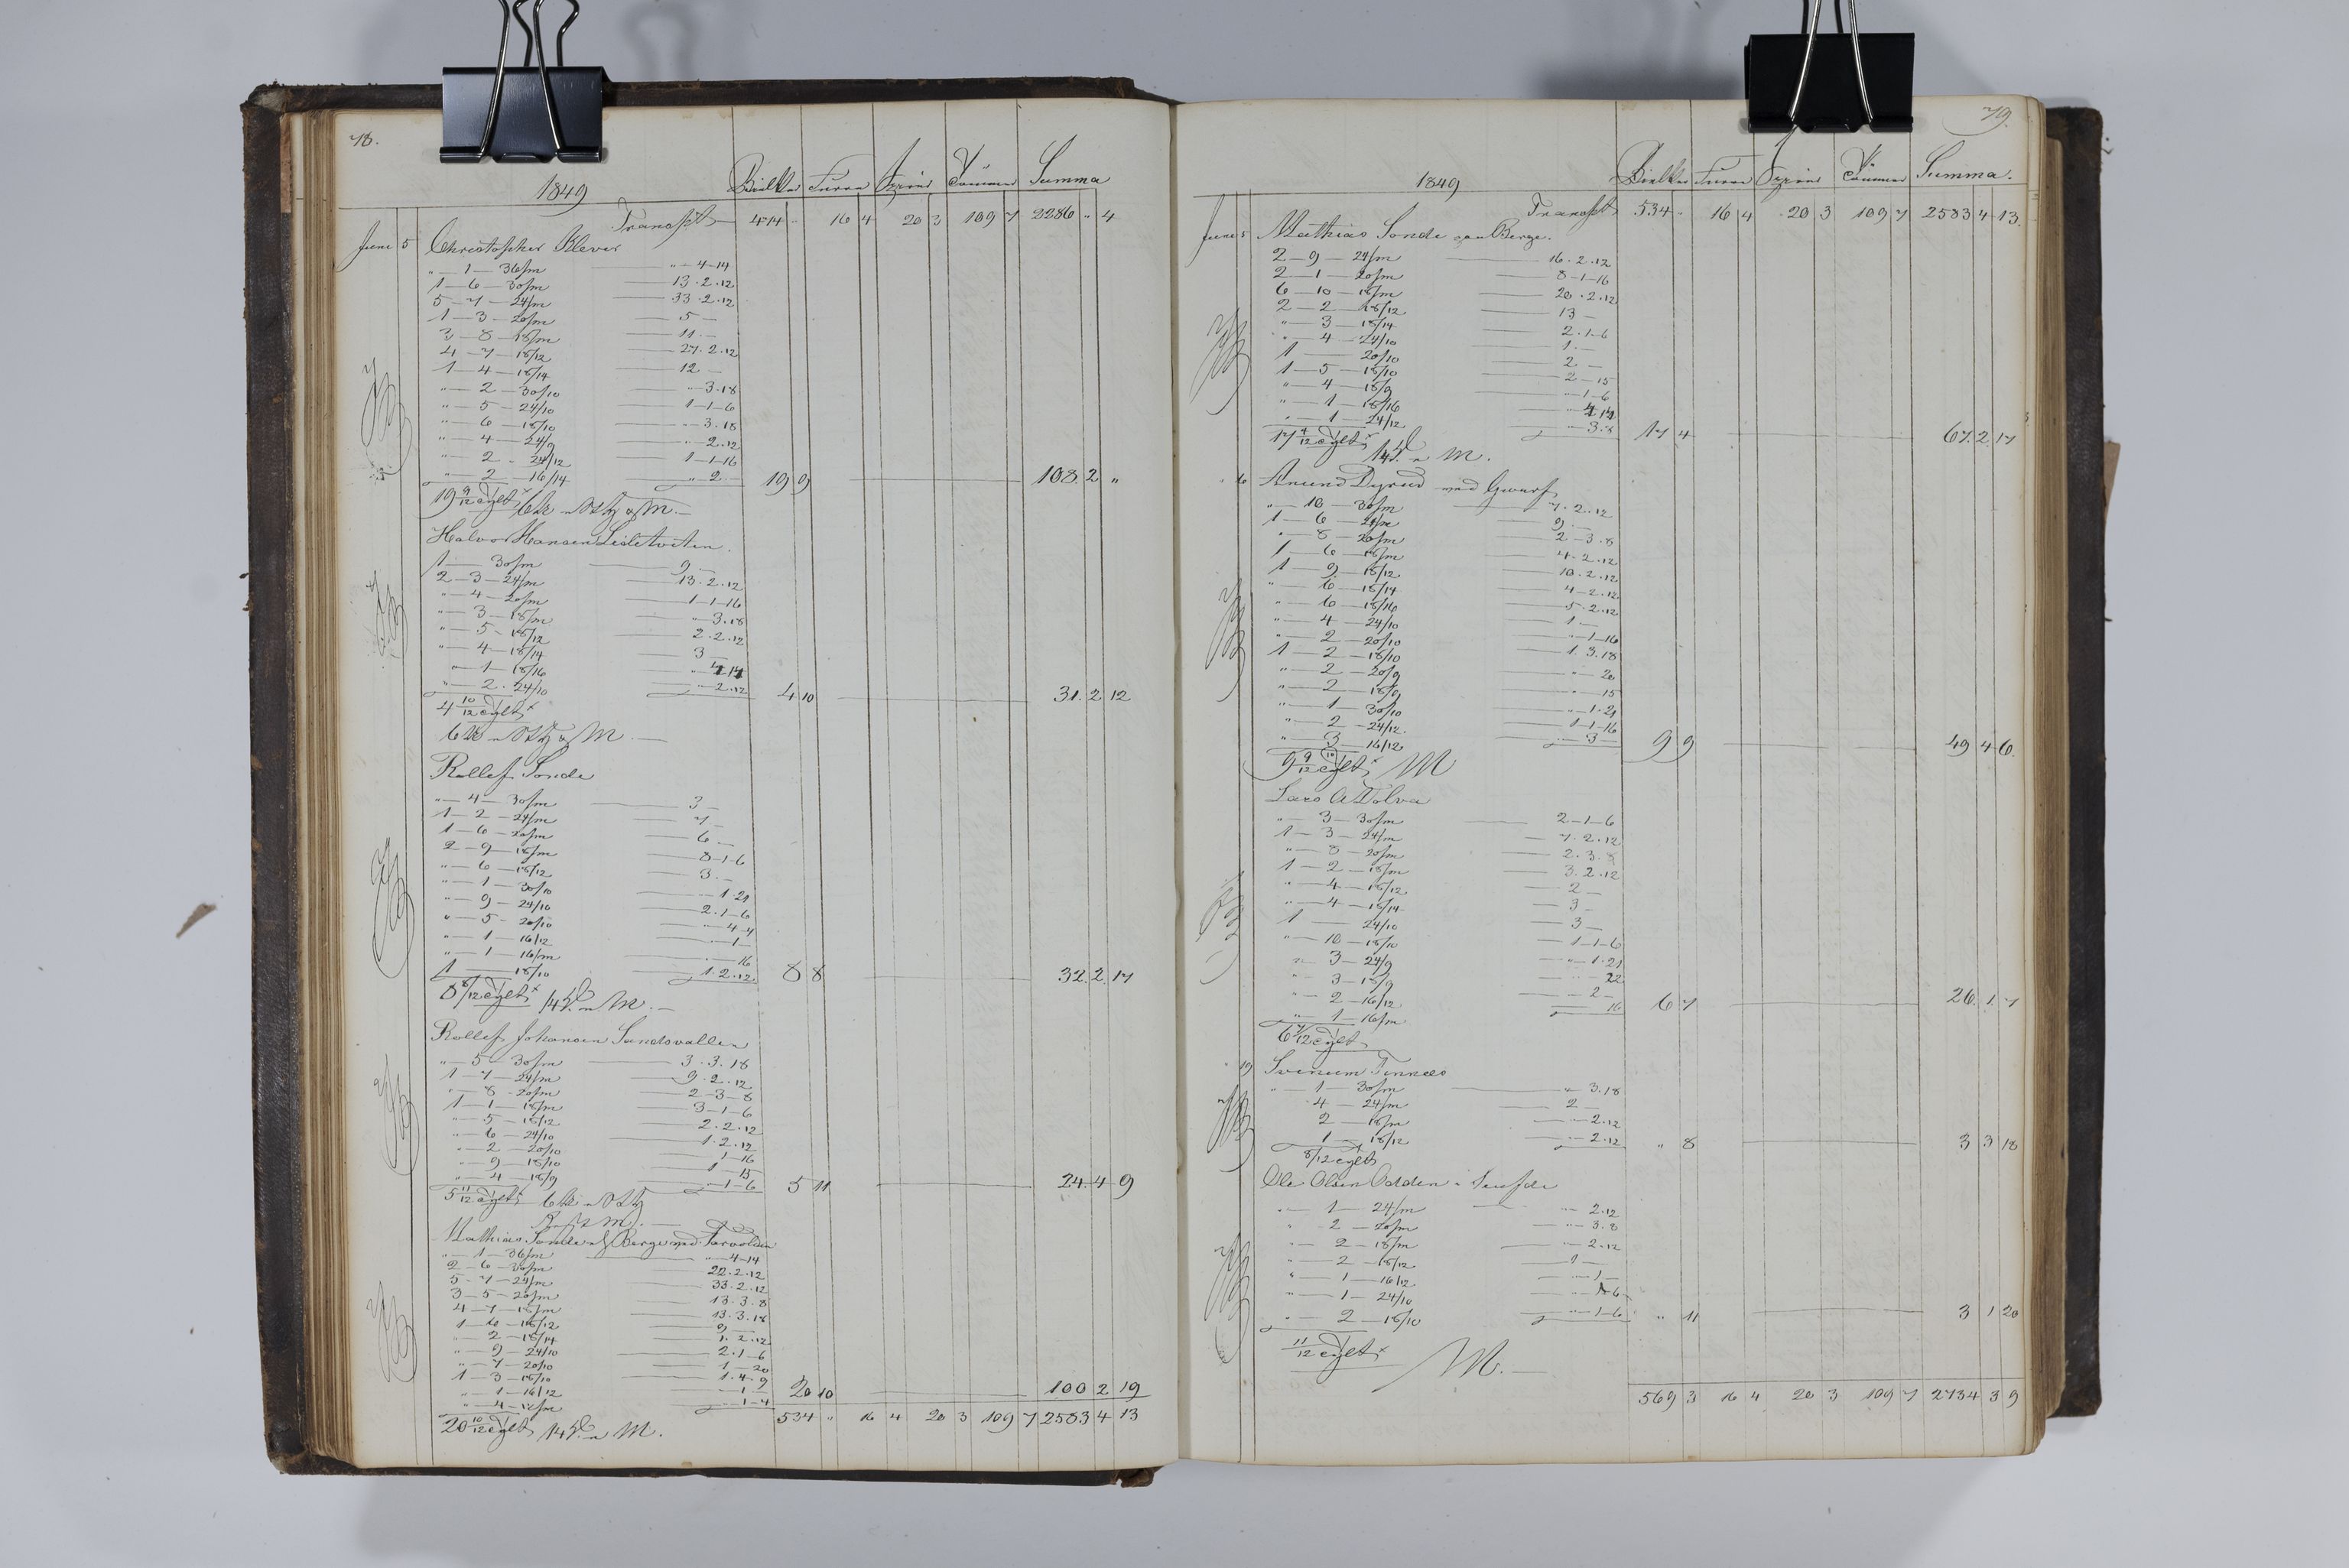 78.
1849 Bielker Furru Summa
Transpt 474 " 16 4 20 3 109 7 2286 " 4
Juni 5 Christopher Klever
" — 1 — 36/m — " 4-14
1 — 6 — 30/m — 13.2.12
5 — 7 — 24/m — 33.2.12
1 — 3 — 20/m — 5 —
3 — 8 — 18/m — 11. —
4 — 7 — 18/12 — 27.2.12
1 — 4 — 18/14 — 12 —
" — 2 — 30/10 — " 3.18
" — 5 — 24/10 — 1-1-6
" — 6 — 18/10 — " 3.18
" — 4 — 24/9 — " 2.12
" — 2 — 24/12 — 1-1-16
" — 2 — 16/14 — " 2 — 19 9 — 108 2 "
19 9/12 tylt
Halvor Hansen
1 — 30/m — 9 —
2 — 3 — 24/m — 13.2.12
" — 4 — 20/m — 1-1-16
" — 3 — 18/m — " 3.18
" — 5 — 18/12 — 2.2.12
" — 4 — 18/14 — 3 —
" — 1 — 18/16 — " 4.14
" — 2 — 24/10 — " 2.12 4 10 — 31.2 12
4 10/12 tylt
Rollef Sonde
" — 4 — 30/m — 3 —
1 — 2 — 24/m — 7 —
1 — 6 — 20/m — 6 —
2 — 9 — 18/m — 8-1-6
" — 6 — 18/12 — 3. —
" — 1 — 30/10 — " 1.21
" — 9 — 24/10 — 2.1-6
" — 5 — 20/10 — " 4-4
" — 1 — 16/12 — " 1 —
" — 1 — 16/m — " 16
1 — 18/10 — 1.2.12 8 8 — 32.2.17
8 8/12 tylt
Rollef Johansen Sandsvallen
" — 5 — 30/m — 3.3.18
1 — 7 — 24/m — 9.2.12
" — 8 — 20/m — 2-3-8
1 — 1 — 18/m — 3-1-6
" — 5 — 18/12 — 2.2.12
" — 6 — 24/10 — 1.2.12
" — 2 — 20/10 — " 1-16
" — 9 — 18/10 — 1 — 15
" — 4 — 18/9 — " 1-6 5 11 — 24.4 9
5 11/12 tylt
Mathias Sonde Berge med
" — 1 — 36/m — " 4-14
2 — 6 — 30/m — 22.2.12
5 — 7 — 24/m — 33.2.12
3 — 5 — 20/m — 13.3.8
4 — 7 — 18/m — 13.3.18
1 — 6 — 18/12 — 9 —
" — 2 — 18/14 — 1.2.12
" — 9 — 24/10 — 2.1-6
" — 7 — 20/10 — 1 — 20
1 — 3 — 18/10 — 1.4.9
" — 1 — 16/12 — " 1 — 20 10 — 100 2 19
" — 4 — " 1-4
534 " 16 4 20 3 109 7 2583 4 13
20 10/12 tylt
79.
1849 Bielker Furru Summa.
Transpt 534 " 16 4 20 3 109 7 2583 4 13.
Juni 5 Mathias Sonde Berge.
2 — 9 — 24/m — 16.2.12
2 — 1 — 20/m — 8-1-16
6 — 10 — 18/m — 20.2.12
2 — 2 — 18/12 — 13 —
" — 3 — 18/14 — 2.1-6
" — 4 — 24/10 — 1. —
1 — 20/10 — 2 —
1 — 5 — 18/10 — 2 — 15
" — 4 — 18/9 — " 1-6
" — 1 — 18/16 — " 4.14
" — 1 — 24/12 — " 3.8 17 4 — 67.2 17
17 4/12 tylt
" 6 Anund Dyrud med
" — 10 — 30/m — 7.2.12
1 — 6 — 24/m — 9. —
" — 8 — 20/m — 2-3.8
1 — 6 — 18/m — 4-2.12
1 — 9 — 18/12 — 10.2.12
" — 6 — 18/14 — 4-2.12
" — 6 — 18/16 — 5.2.12
" — 4 — 24/10 — 1 —
" — 2 — 20/10 — " 1-16
1 — 2 — 18/10 — 1.3.18
" — 2 — 20/9 — " 20
" — 2 — 18/9 — " 15
" — 1 — 30/10 — " 1.21
" — 2 — 24/12 — 1-1-16
" — 3 — 16/12 — " 3 — 9 9 — 49 4 6
9 9/12 tylt M
Lars Tolva
" — 3 — 30/m — 2-1-6
1 — 3 — 24/m — 7.2.12
" — 8 — 20/m — 2.3.8
1 — 2 — 18/m — 3.2.12
" — 4 — 18/12 — 2 —
" — 4 — 18/14 — 3 —
1 — 24/10 — 3 —
" — 10 — 18/10 — 1-1-6
" — 3 — 24/9 — " 1.21
" — 3 — 18/9 — " 22
" — 2 — 16/12 — " 2 —
" — 1 — 16/m — 16 6 7 — 26.1.7
6 7/12 tylt
" 19 Tinnees
" — 1 — 30/m — " 3.18
4 — 24/m — 2 —
2 — 18/m — " 2.12
1 — 18/12 — " 2.12 " 8 — 3 3 18
8/12 tylt
Ole Olsen Odden
" — 1 — 24/m — " 2.12
" 2 — 20/m — " 3.8
" 2 — 18/m — " 2.12
" 2 — 18/12 — 1 —
" 1 — 16/12 — " 1 —
" 1 — 24/10 — " 1-6
" 2 — 18/10 — " 1-6 " 11 — 3 1 20
11/12 tylt M.
569 3 16 4 20 3 109 7 2734 3 9